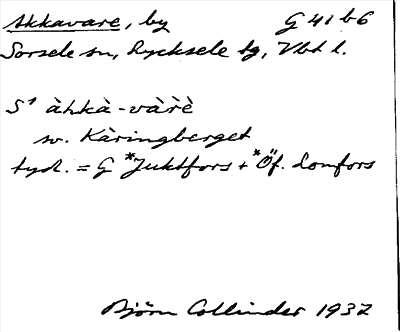 Akkavare, by G 41 b6
Sorsele sn, Lycksele tg, Vbt l.
S¹ àhkà-vàr̀è
sv. Käringberget
tyd. = G *Juktfors + *Öf. Lomfors
Björn Collinder 1937